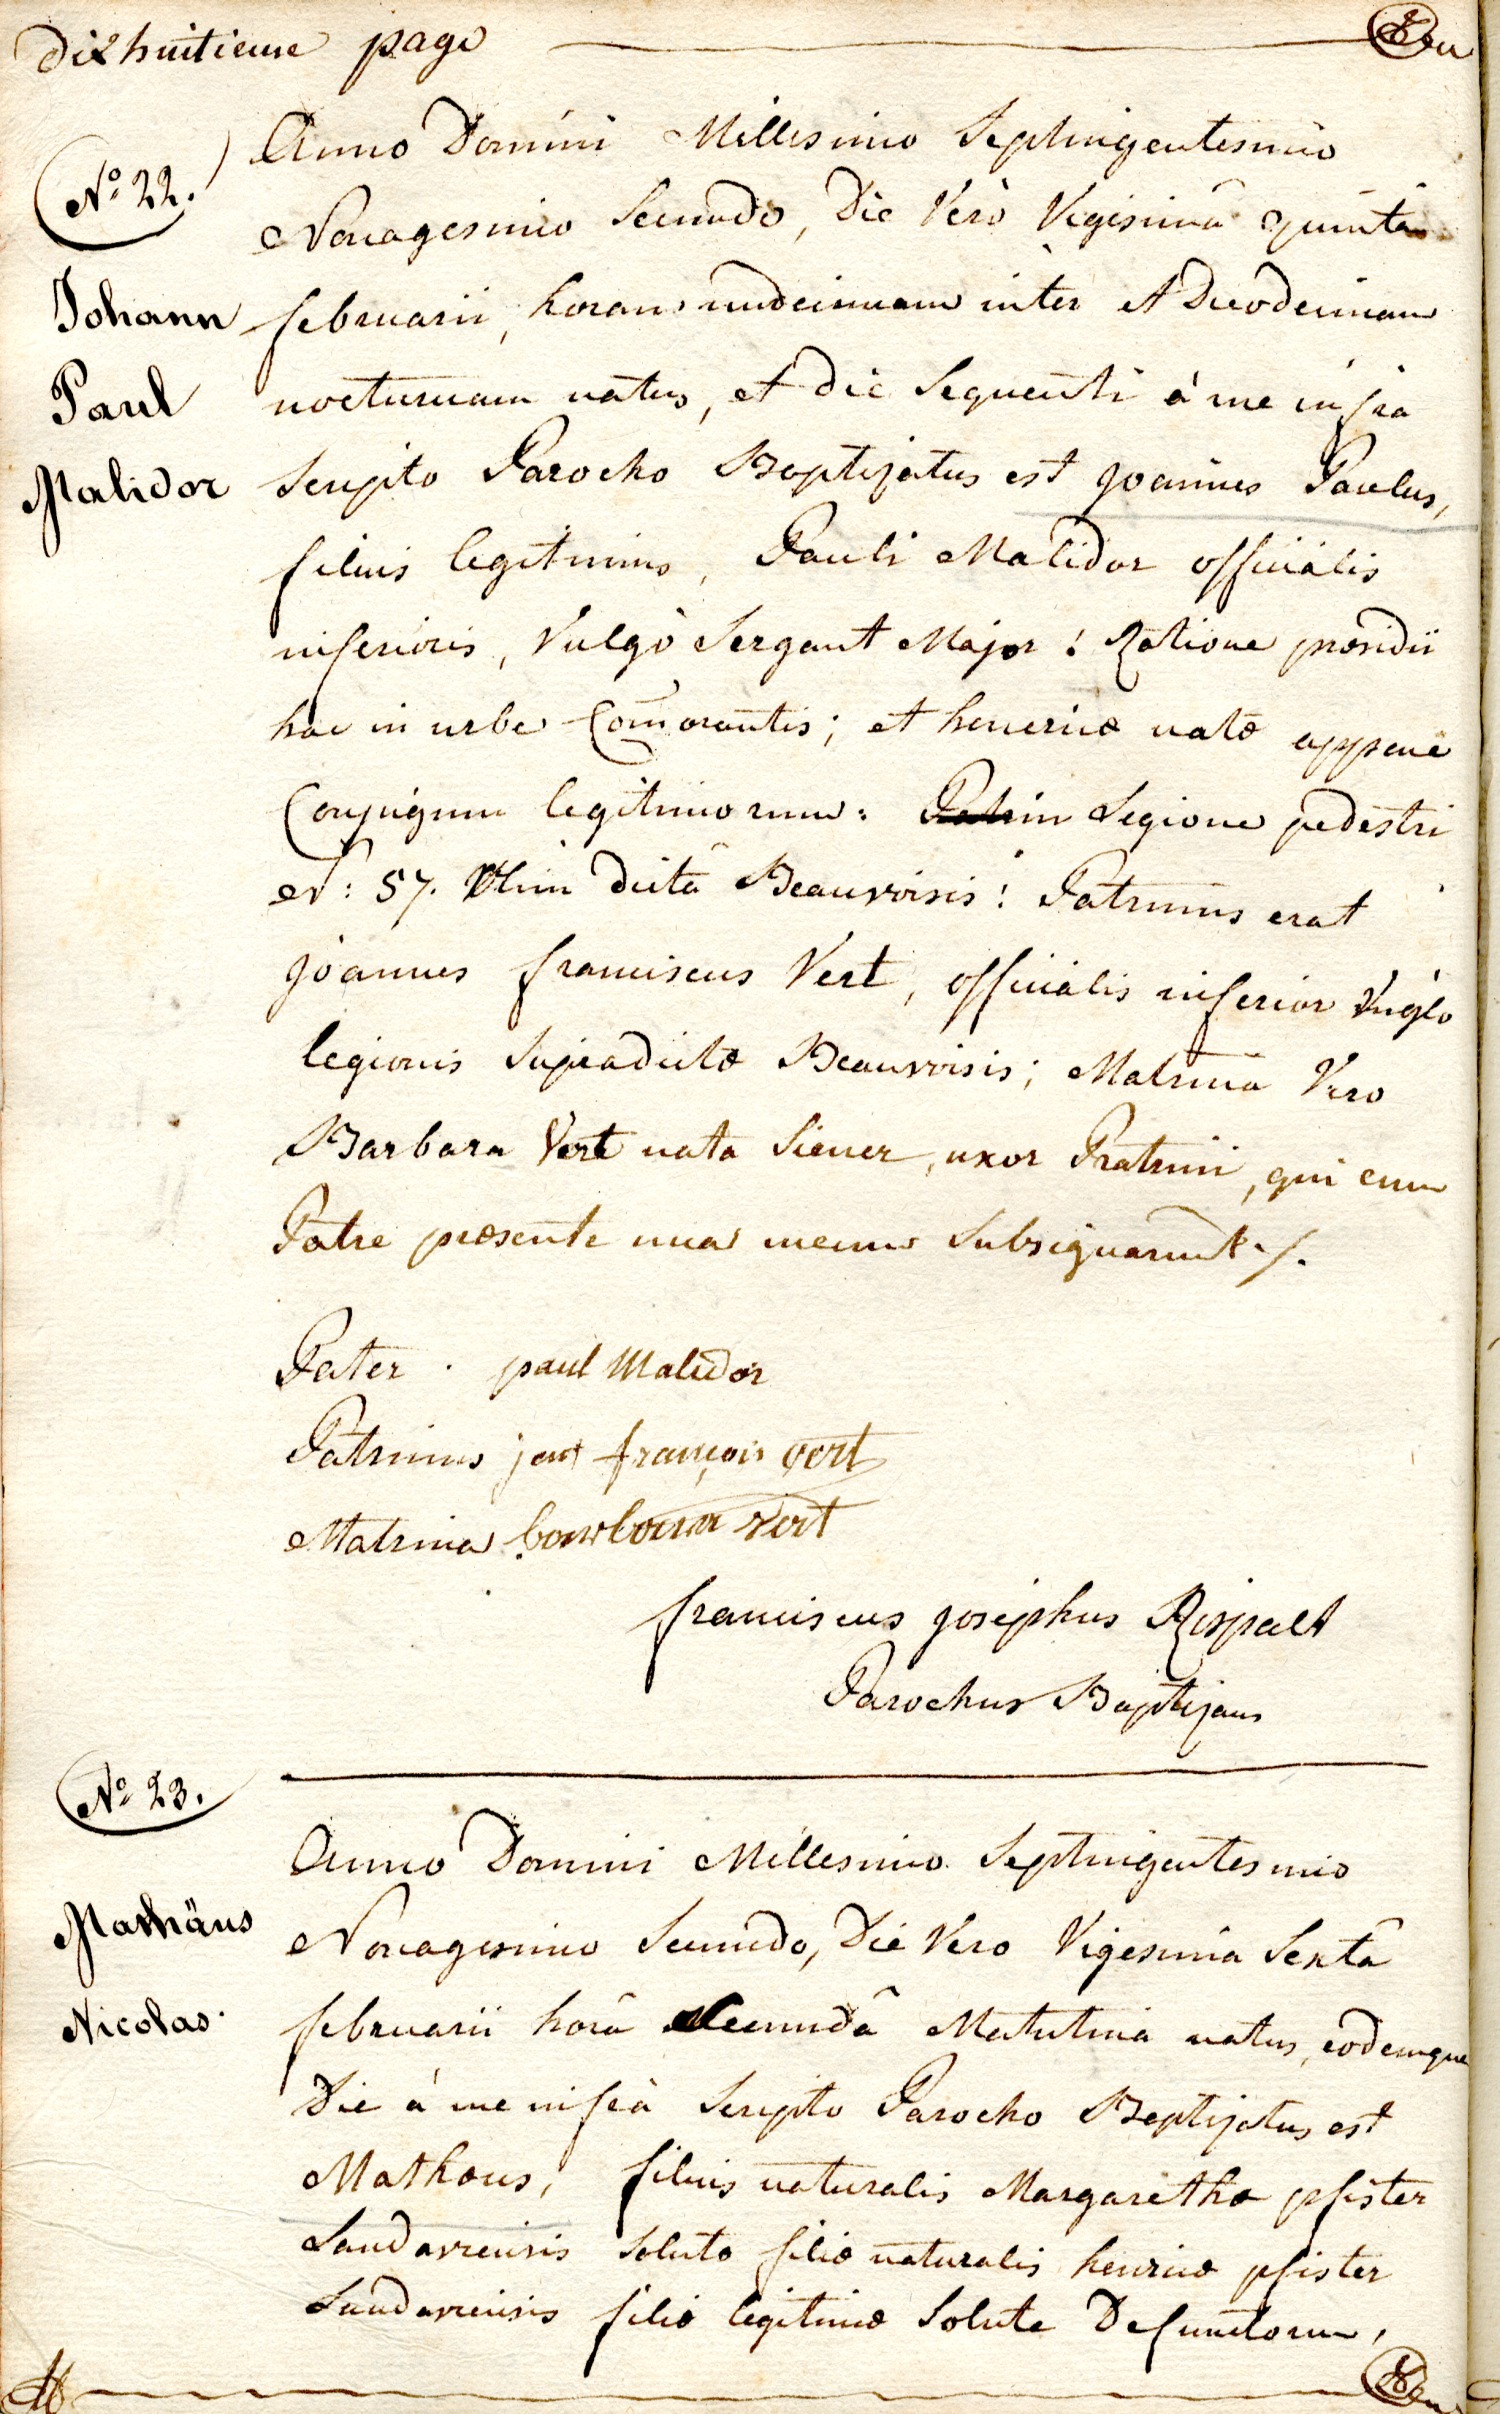 dixhuitieme page
Nº 22.
Johann
Paul
Malidor
Anno Domini Millesimo Septingentesimo
Nonagesimo Secundo, Die Verò Vigesimâ quintâ
februarii, horam undecimam inter et duodecimam
nocturnam natus, et die Sequenti à me infra
Scripto Parocho Baptizatus est Joannes Paulus,
filius legitimus, Pauli Malidor officialis
inferioris, Vulgò Sergant Major: Ratione præsidii
hac in urbe Com̄orantis; et henericæ natæ
Conjugum legitimorum: in Legione pedestri
N: 57. Olim dictâ Beauvoisis: Patrinus erat
Joannes franciscus Vert, officialis inferior Vuglo
legionis Supradictæ Beauvoisis; Matrina Vero
Barbara Vert nata Siener, uxor Pratrini, qui cum
Patre præsente una mecum Subsignarunt ./.
Pater . paul Malidor
Patrinus jean françois vert
Matrina vert
franciscus Josephus Rispalt
Parochus Baptizans
Nº 23.
Mathäus
Nicolas.
Anno Domini Millesimo Septingentesimo
Nonagesimo Secundo, Die Vero Vigesima Sexta
februarii horâ Secundâ Matutina natus, eodemque
Die à me infrà Scripto Parocho Baptizatus est
Mathæus, filius naturalis Margarethæ pfister
Landaviensis Solutæ filiæ naturalis henricæ pfister
Landaviensis filiæ legitimæ Solutæ Defunctorum,